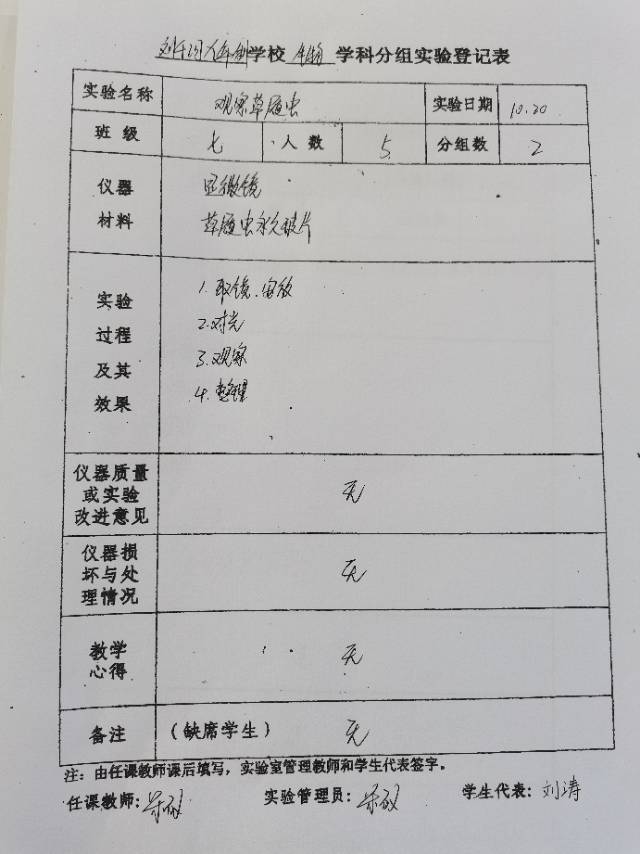 学校 生物 学科分组实验登记表
实验名称 观察草履虫 实验日期 10.20
班级 七 人数 5 分组数 2
仪器材料
显微镜
草履虫永久装片
实验过程及其效果
1.取镜.安放
2.对光
3.观察
4.整理
仪器质量或实验改进意见 无
仪器损坏与处理情况 无
教学心得 无
备注 (缺席学生) 无
注：由任课教师课后填写，实验室管理教师和学生代表签字。
任课教师： 实验管理员： 学生代表：刘涛